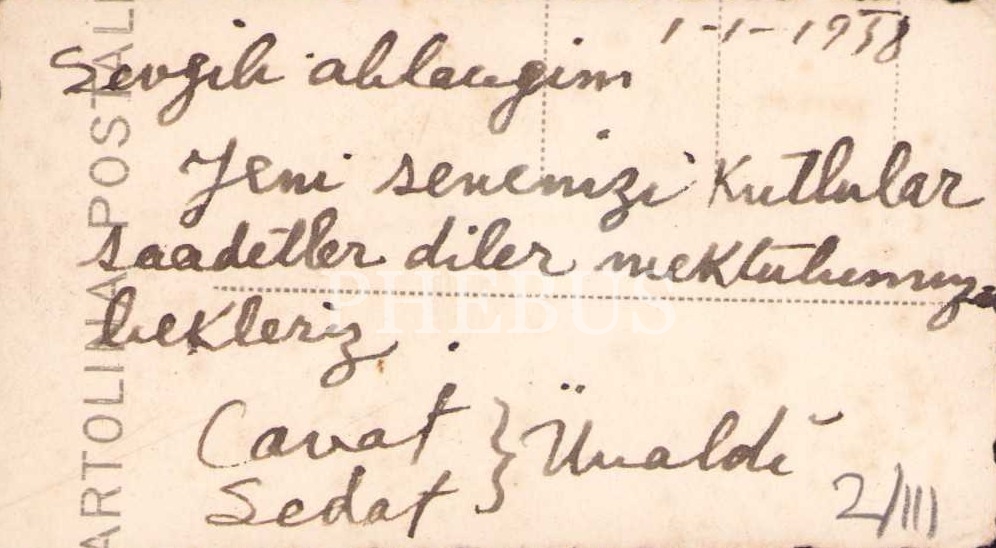 1-1-1938
Sevgili ablacığım
Yeni senenizi kutlular
saadetler diler mektubunuzu
bekleriz.
Cavat
Sedat } Ünaldı
2/III
ARTOLINA POSTAL
PHEBUS